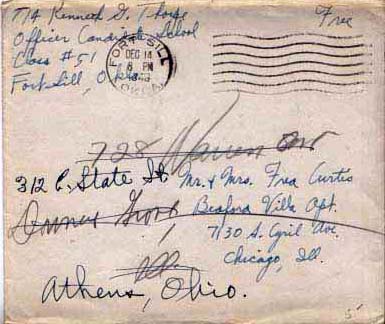 T/4 Kenneth G. Thorpe
Officer Candidate School
Class #51
Fort Sill, Okla
Free
FORT SILL
DEC 14
8 PM
OKLA.
728 Warren Ave
312 E. State St
Downers Grove
Ill.
Athens, Ohio.
Mr. & Mrs. Fred Curtis
Bedford Villa Apt.
7130 S. Cyril Ave.
Chicago, Ill.